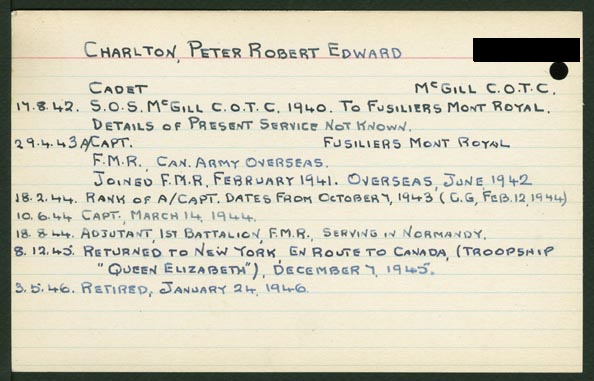 CHARLTON, PETER ROBERT EDWARD
CADET McGILL C.O.T.C.
17.8.42. S.O.S. McGILL C.O.T.C. 1940. TO FUSILIERS MONT ROYAL.
DETAILS OF PRESENT SERVICE NOT KNOWN.
29.4.43 A/CAPT. FUSILIERS MONT ROYAL
F.M.R., CAN. ARMY OVERSEAS.
JOINED F.M.R. FEBRUARY 1941. OVERSEAS, JUNE 1942
18.2.44. RANK OF A/CAPT. DATES FROM OCTOBER 7, 1943 (C.G, FEB.12,1944)
10.6.44 CAPT., MARCH 14, 1944.
18.8.44. ADJUTANT, 1ST BATTALION, F.M.R., SERVING IN NORMANDY.
8.12.45. RETURNED TO NEW YORK, EN ROUTE TO CANADA, (TROOPSHIP
"QUEEN ELIZABETH"), DECEMBER 7, 1945.
3.5.46. RETIRED, JANUARY 24, 1946.